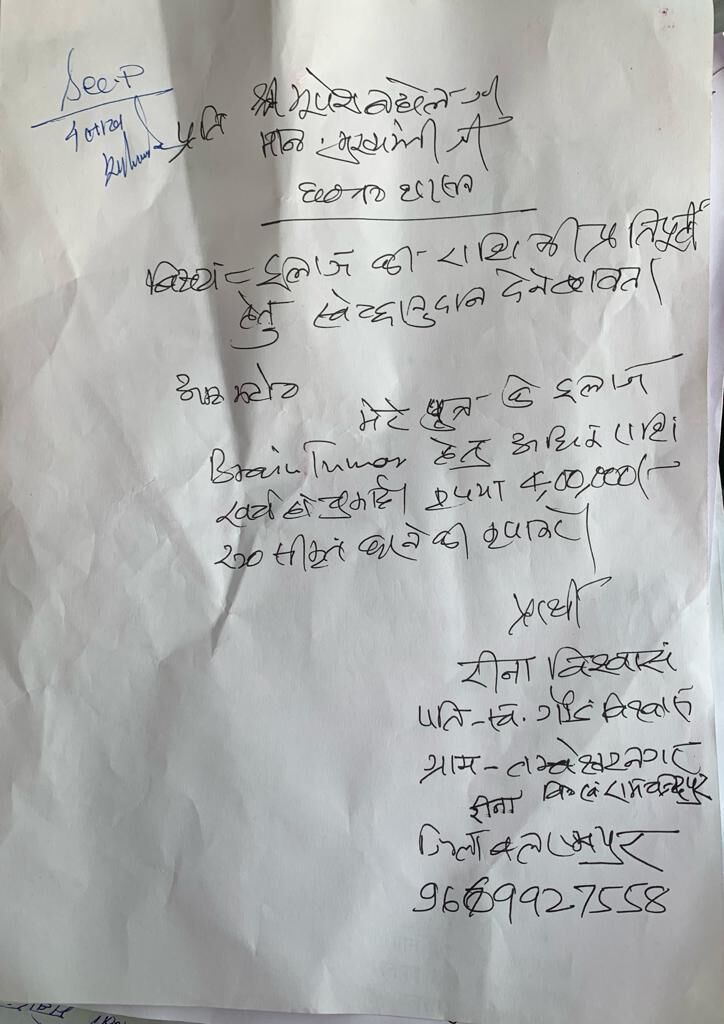 See-P
4 लाख
प्रति श्री भूपेश बघेल जी
मान. मुख्यमंत्री जी
छ०ग० शासन
विषय - इलाज की राशि की प्रतिपूर्ती
हेतु स्वेच्छानुदान देने बाबत।
महोदय
मेरे पुत्र के इलाज
Brain Tumor हेतु अधिक राशि
खर्च हो चुकी है। रुपया 4,00,000/-
स्वीकृत करने की कृपा करें।
प्रार्थी
रीना विश्वास
पति - स्व. गौर विश्वास
ग्राम - ताम्बेश्वरनगर
रीना वि०ख० रामचन्द्रपुर
जिला बलरामपुर
9669927558